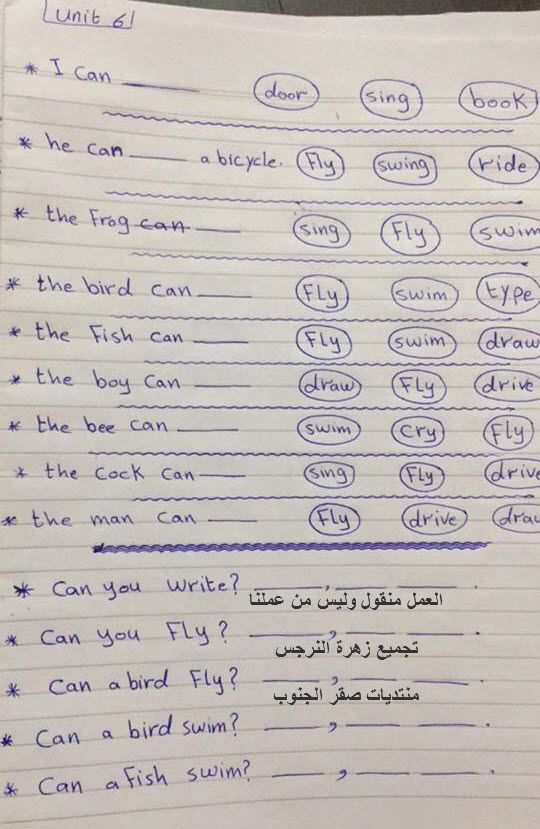 Unit 6
* I can ______ door sing book
* he can ______ a bicycle. Fly swing ride
* the Frog can ______ sing Fly swim
* the bird can ______ Fly swim type
* the Fish can ______ Fly swim draw
* the boy can ______ draw Fly drive
* the bee can ______ swim cry Fly
* the cock can ______ sing Fly drive
* the man can ______ Fly drive draw
* Can you write? ______, ______ ______.
العمل منقول وليس من عملنا
* Can you Fly? ______, ______ ______.
تجميع زهرة النرجس
* Can a bird Fly? ______, ______ ______.
منتديات صقر الجنوب
* Can a bird swim? ______, ______ ______.
* Can a Fish swim? ______, ______ ______.